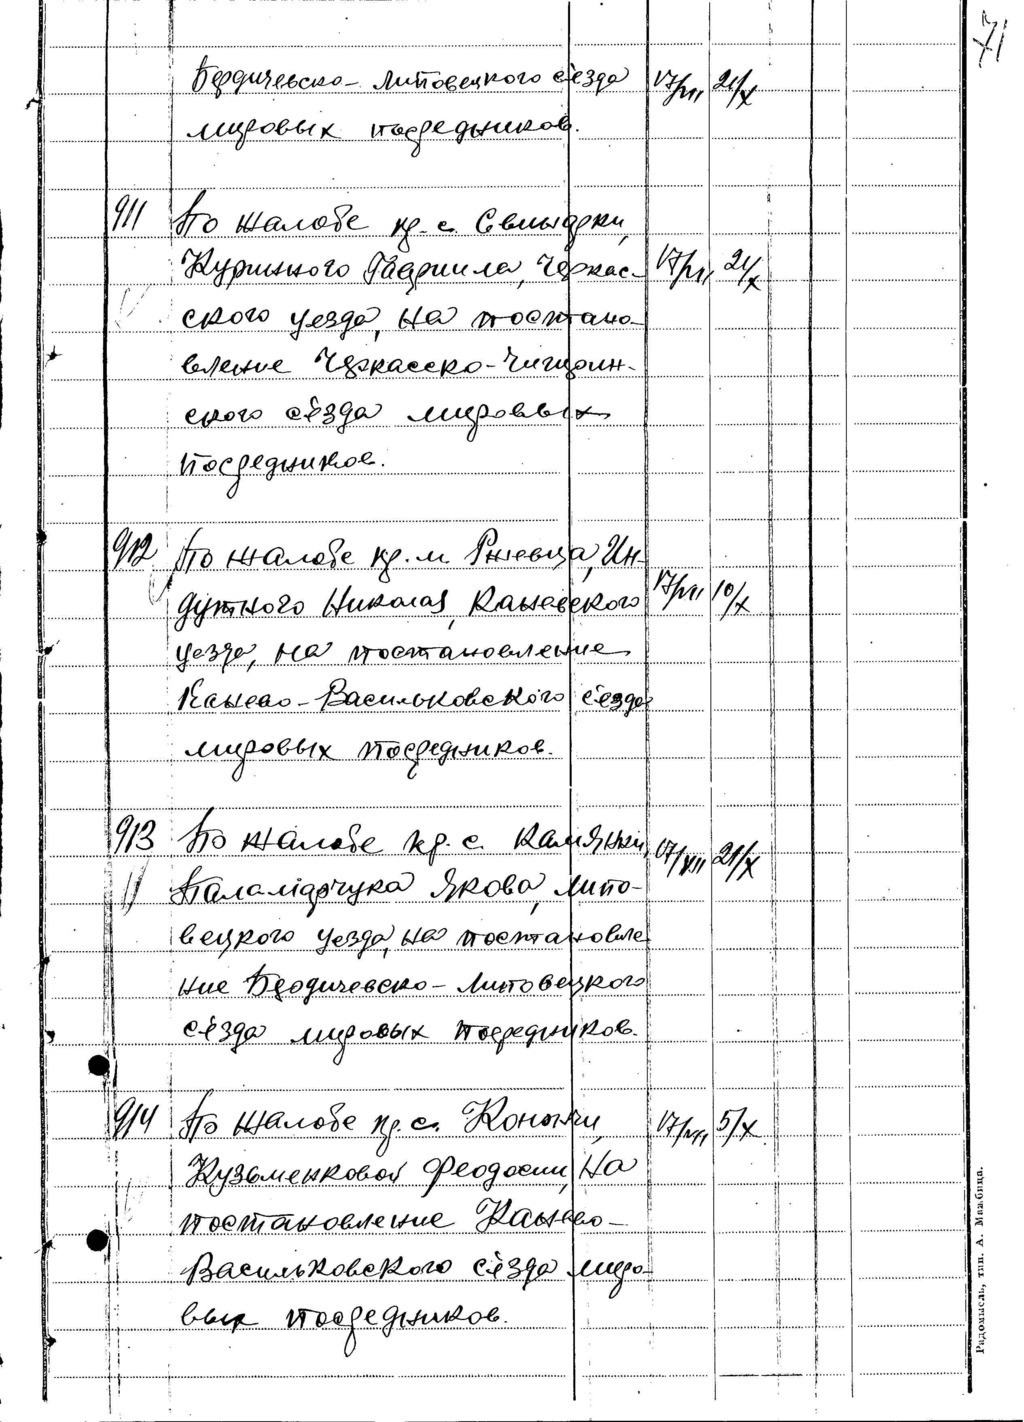 71
Бердичевско-Липовецкого с'езда 17/VII 21/X
мировых посредников.
911 По жалобе кр. с. Свидивки,
Куринного Гавриила, Черкас- 17/VII 21/X
ского уезда, на постано-
вление Черкасско-Чигирин-
ского с'езда мировых
посредников.
912 По жалобе кр. м. Ржевца, Ин-
дутного Николая, Каневского 17/VII 10/X
уезда, на постановление
Канево-Васильковского с'езда
мировых посредников.
913 По жалобе кр. с. Камянки, 17/VII 21/X
Паламарчука Якова, Липо-
вецкого уезда, на постановле
ние Бердичевско-Липовецкого
с'езда мировых посредников.
914 По жалобе кр. с. 17/VII 5/X
Кузьменковой Феодосии, на
постановление Канево-
Васильковского с'езда миро-
вых посредников.
Радомысль, тип. А. Мажбица.